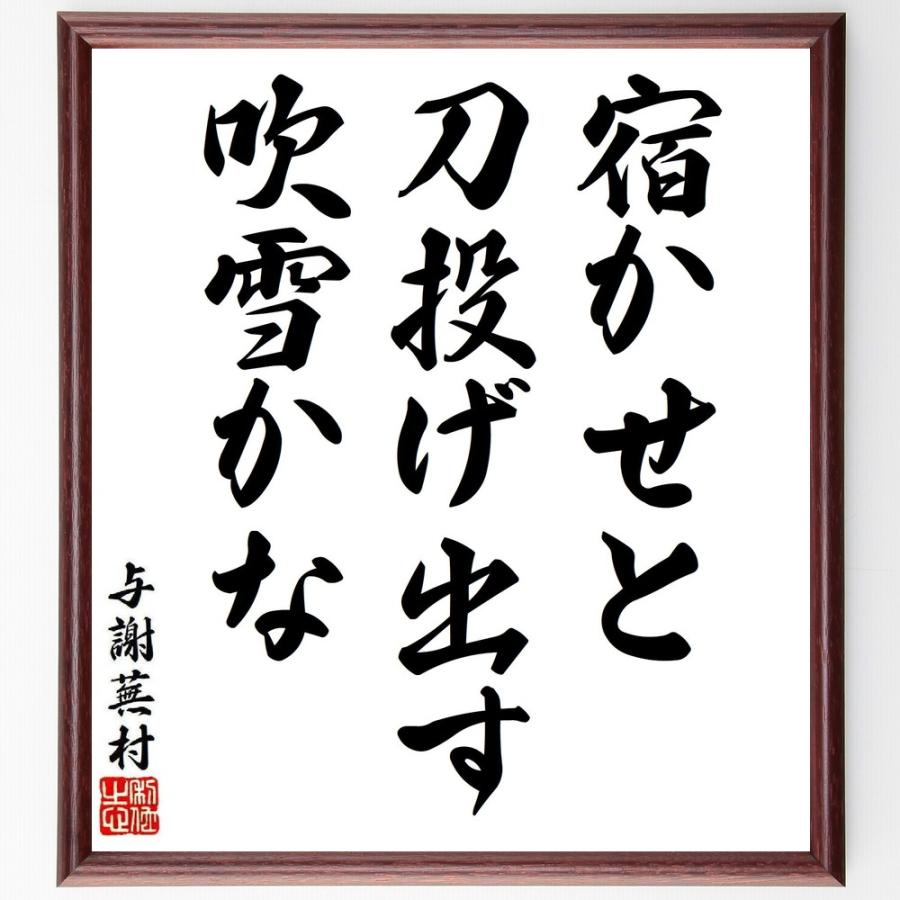 宿かせと
刀投げ出す
吹雪かな
与謝蕪村